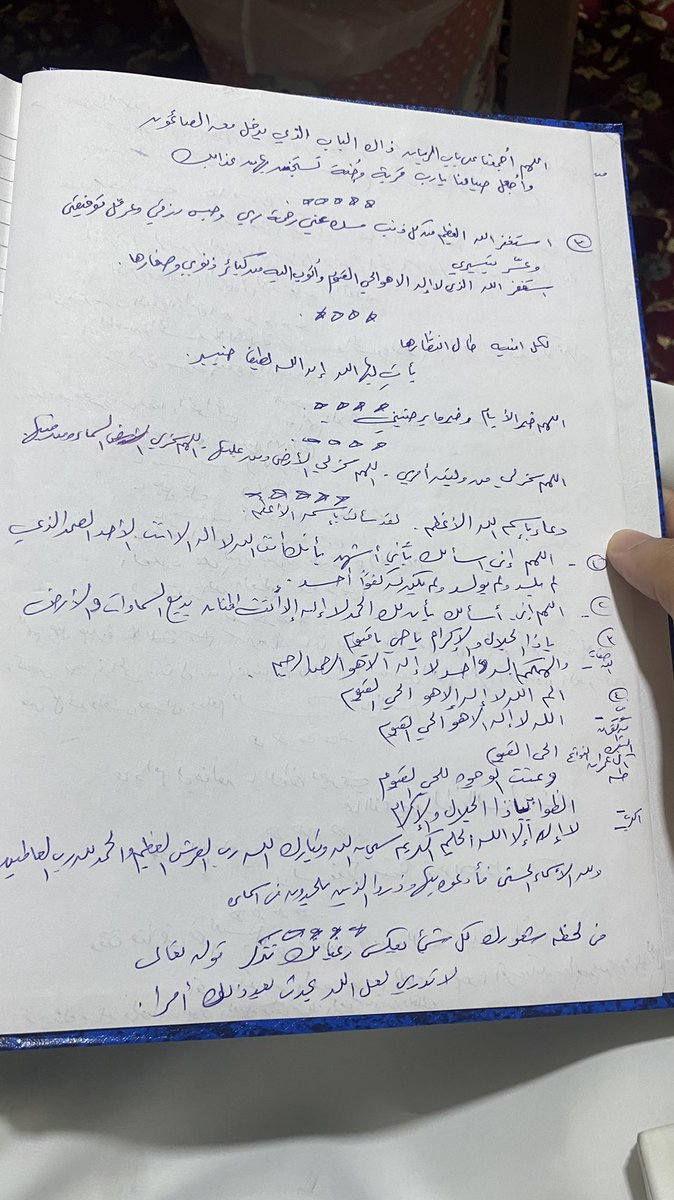 اللهم اجمعنا عن باب الريان ذاك الباب الذي يدخل معه الصائمون
واجعل صيامنا يارب قربة وجُنة نستجند بها من عذابك
٣ استغفر الله العظيم من كل ذنب مسك عني رحمة ربي وحبس رزقي وعرقل توفيقي
وعسّر تيسيري
استغفر الله الذي لا إله الا هو الحي القيوم وأتوب اليه من كبائر ذنوبي وصغارها .
لكل امنيه طال انتظارها
يأتِ بها الله إن الله لطيفا خبير .
اللهم خير الأيام وخير ما يرضيني
اللهم سخر لي من وليته أمري - اللهم سخر لي الأرض ومن عليها - اللهم سخر لي السماء ومن فيها
دعاء بإسم الله الأعظم . لقد سألت باسمه الأعظم .
١ - اللهم إني اسألك بأني أشهد بأنك أنت الله لا اله الا انت الأحد الصمد الذي
لم يلد ولم يولد ولم يكن له كفواً أحد .
٢ - اللهم إني أسألك بأن لك الحمد لا إله إلا أنت المنان بديع السماوات والأرض
ياذا الجلال والإكرام يا حي يا قيوم
٣ والهكم إله واحد لا إله الا هو الرحمن الرحيم
الم الله لا إله إلا هو الحي القيوم
الله لا إله الا هو الحي القيوم
الحي القيوم
آل عمران
طه وعنت الوجوه للحي القيوم
الظوا بياذا الجلال والإكرام
لا إله إلا الله الحليم الكريم سبحان الله وتبارك الله رب العرش العظيم والحمد لله رب العالمين
ولله الأسماء الحسنى فأدعوه بها وذروا الذين يلحدون في اسمائه
في لحظه شعورك كل شيء بعكس رغباتك تذكر قوله تعالى
لا تدري لعل الله يحدث بعد ذلك أمرا .